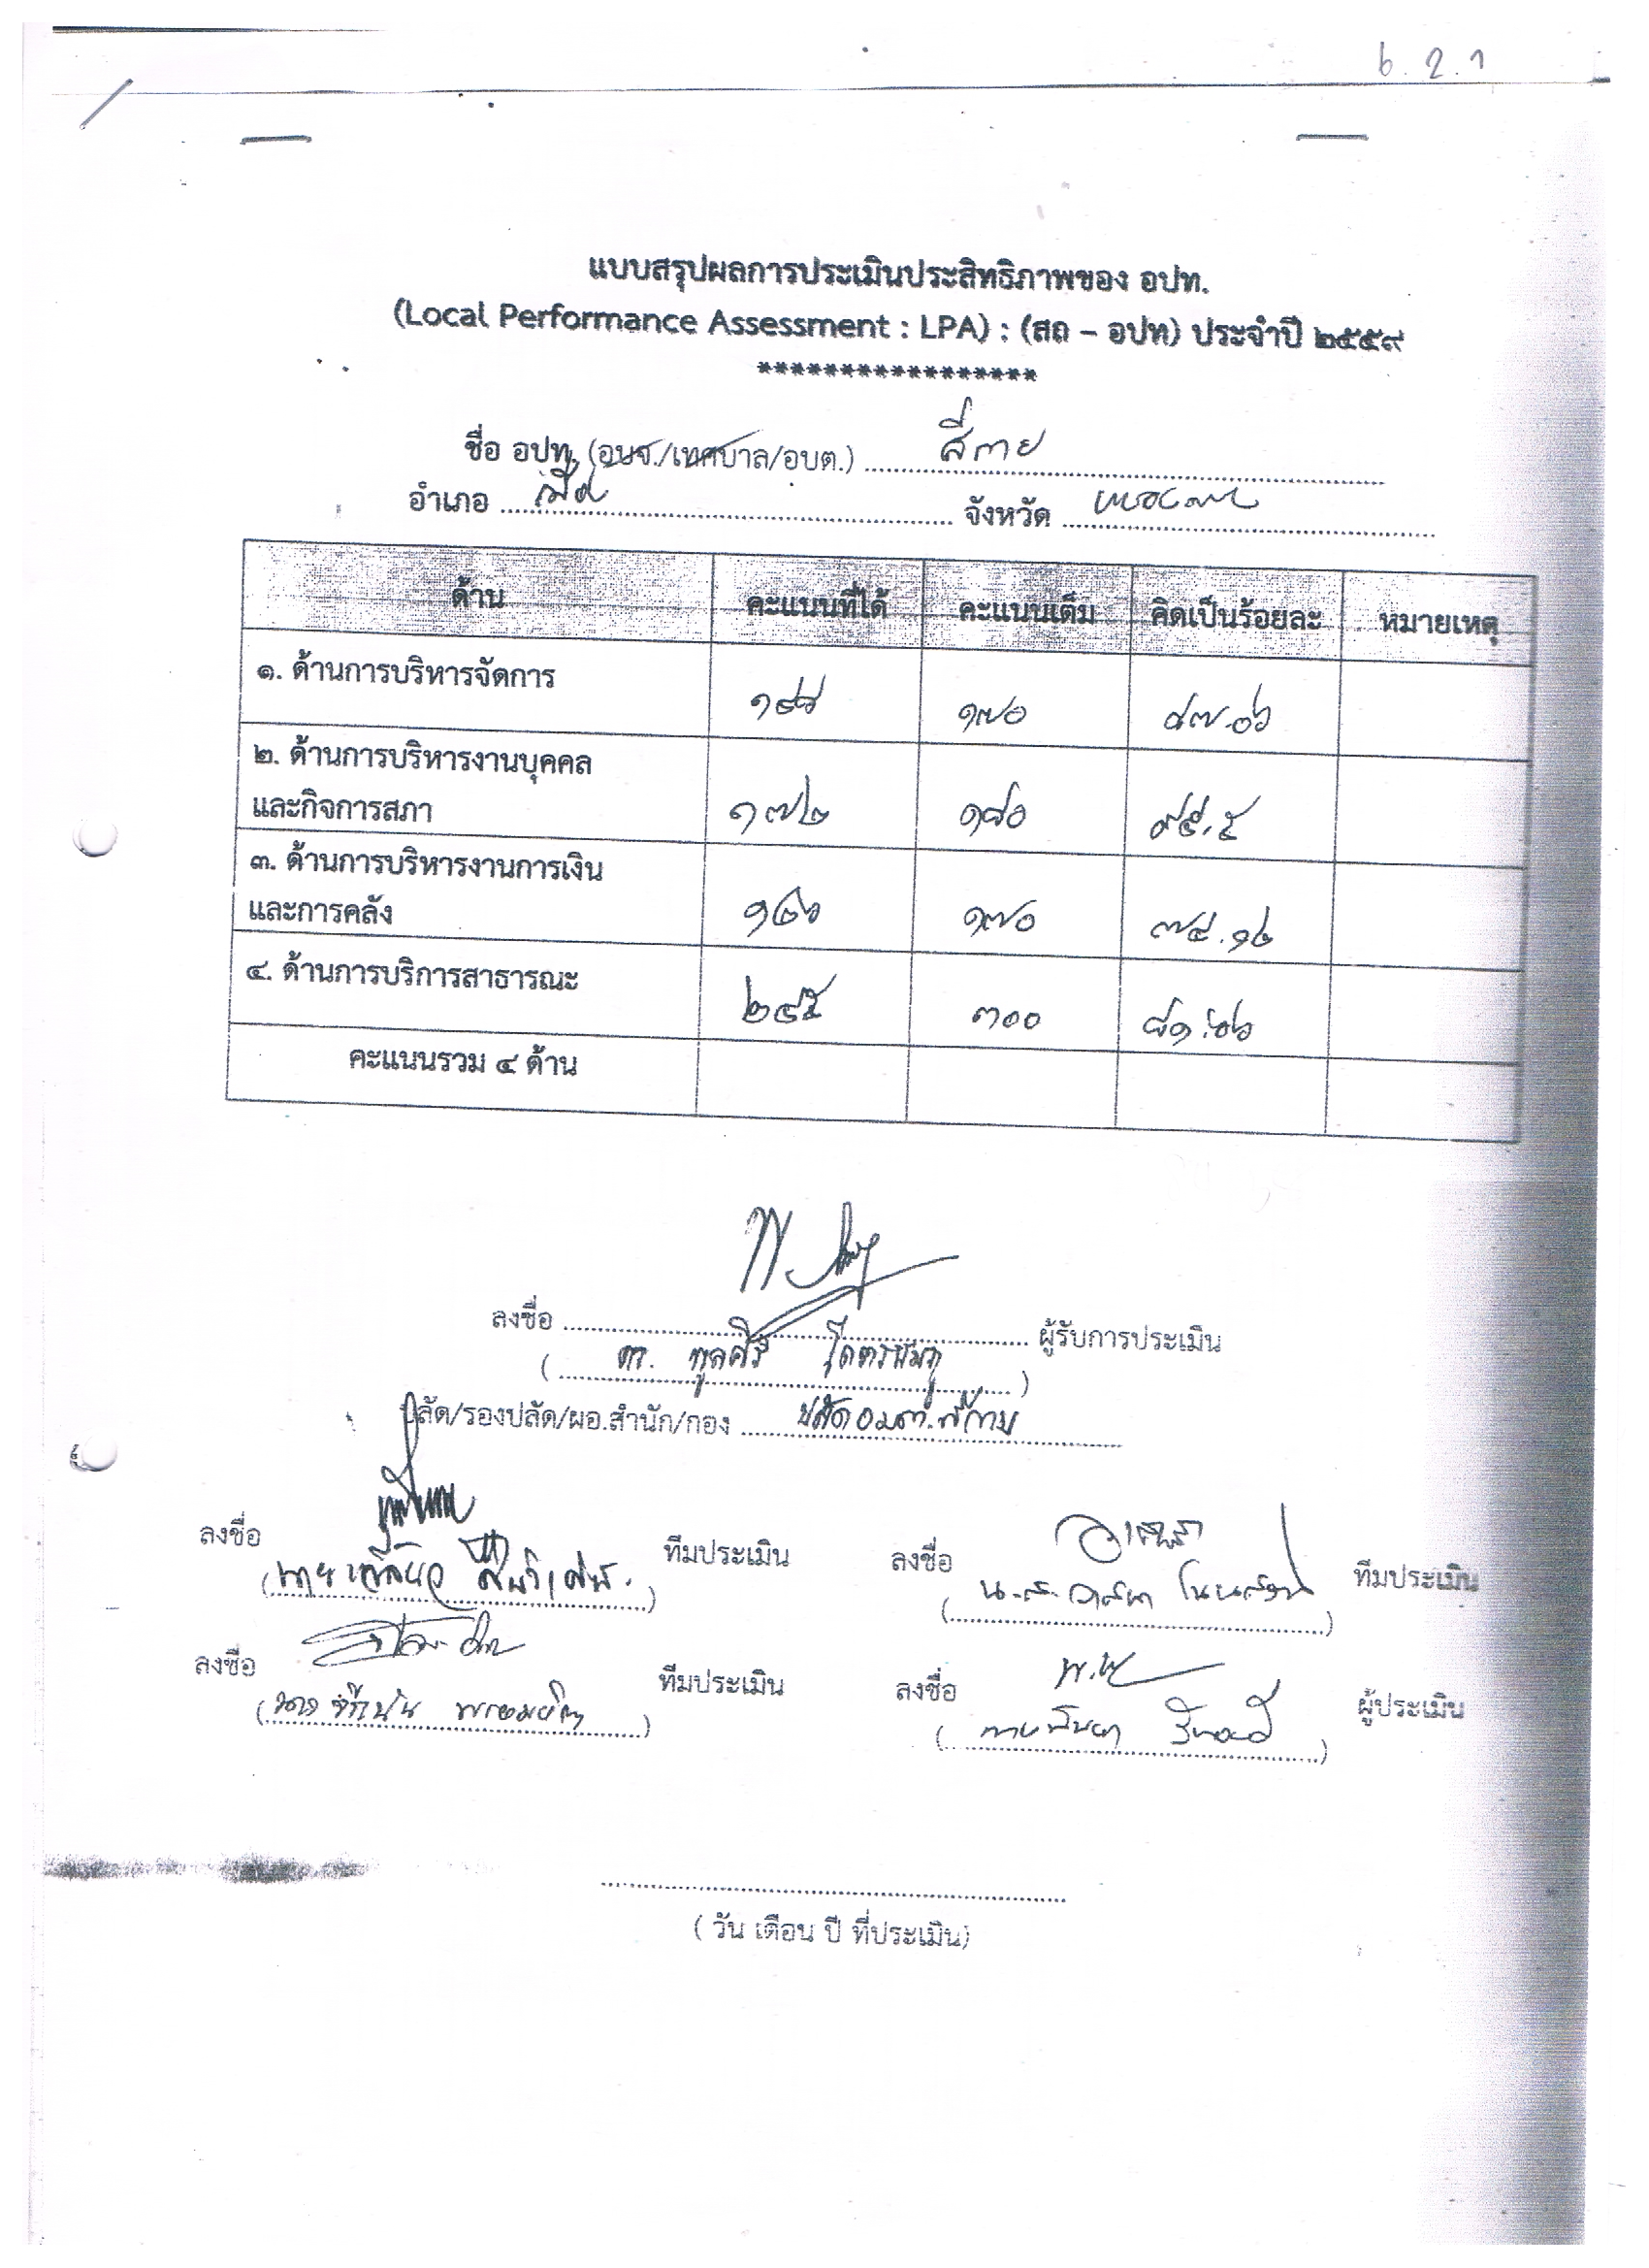 6.2.1
แบบสรุปผลการประเมินประสิทธิภาพของ อปท.
(Local Performance Assessment : LPA) : (สถ – อปท) ประจำปี ๒๕๕๙
*****************
ชื่อ อปท. (อบจ./เทศบาล/อบต.) สีกาย
อำเภอ เมือง จังหวัด หนองคาย
ด้าน คะแนนที่ได้ คะแนนเต็ม คิดเป็นร้อยละ หมายเหตุ
๑. ด้านการบริหารจัดการ ๑๔๘ ๑๗๐ ๘๗.๐๖
๒. ด้านการบริหารงานบุคคล
และกิจการสภา ๑๗๒ ๑๘๐ ๙๕.๕
๓. ด้านการบริหารงานการเงิน
และการคลัง ๑๒๖ ๑๗๐ ๗๔.๑๒
๔. ด้านการบริการสาธารณะ ๒๔๕ ๓๐๐ ๘๑.๖๖
คะแนนรวม ๔ ด้าน
ลงชื่อ ผู้รับการประเมิน
( ดร. พูลศรี )
ปลัด/รองปลัด/ผอ.สำนัก/กอง ปลัด อบต.สีกาย
ลงชื่อ ทีมประเมิน ลงชื่อ ทีมประเมิน
(นาย ) ( น.ส. )
ลงชื่อ ทีมประเมิน ลงชื่อ ผู้ประเมิน
( วัน เดือน ปี ที่ประเมิน)